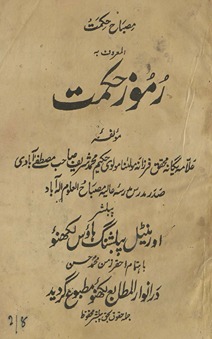 مصباح حکمت
المعروف بہ
رموز حکمت
مؤلفہ
علامہ یگانہ محقق فرزانہ مولانا مولوی حکیم محمد شریف صاحب مصطفےٰ آبادی
صدر مدرس مدرسہ عالیہ مصباح العلوم الہ آباد
پبلشر
اورینٹل پبلشنگ ہاؤس لکھنؤ
باہتمام احقر الزمن محمد حسن
در انوار المطابع لکھنؤ مطبوع گردید
جملہ حقوق بحق پبلشر محفوظ